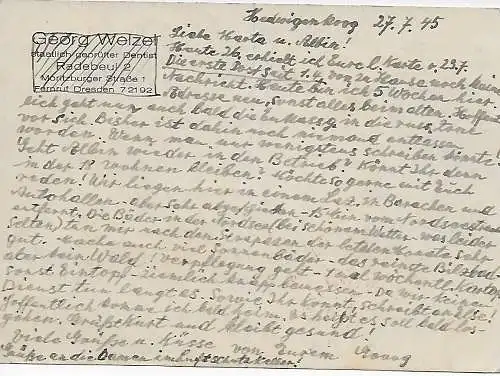 Hedwigenkoog 27.7.45
Georg Welzel
staatlich geprüfter Dentist
Radebeul 2
Moritzburger Straße 1
Fernruf Dresden 72192
Liebe Marta u. Albin!
Heute 26. erhielt ich Eure l. Karte v. 23.7.
Die erste Post seit 1.4. von zu Hause noch keine
Nachricht. Heute bin ich 5 Wochen hier.
Adresse neu, sonst alles beim alten. Hoffent
lich geht nun auch bald die Entlassg in die russ. Zone
vor sich. Bisher ist dahin noch niemand entlassen
worden. Wenn man nur wenigstens schreiben könnte!
Geht Pollern wieder in den Betrieb? Könnt Ihr denn
in der wohnen bleiben? Möchte so gerne mit Euch
reden! Wir liegen hier in einem Laz. in Baracken und
Autohallen - aber sehr - vom Nordseestrand
entfernt. Die Bäder in der Nordsee (bei schönem Wetter - was leider
selten) tun mir nach den Strapazen der letzten Monate sehr
gut. Mache auch viel Sonnenbäder - das reinste
aber kein Wald! Verpflegung geht - 1 mal wöchentl. Kartoffeln
sonst Eintopf - ziemlich knapp bemessen - Da wir keinen
Dienst tun langt es. Sowie Ihr könnt, schreibt an Else!
Hoffentlich komme ich bald heim. Es heißt es soll bald los-
gehen. Grüßt Kurt und bleibt gesund!
Viele Grüße u. Küsse von Eurem Georg
Grüße an die Damen im Luftschutzkeller!